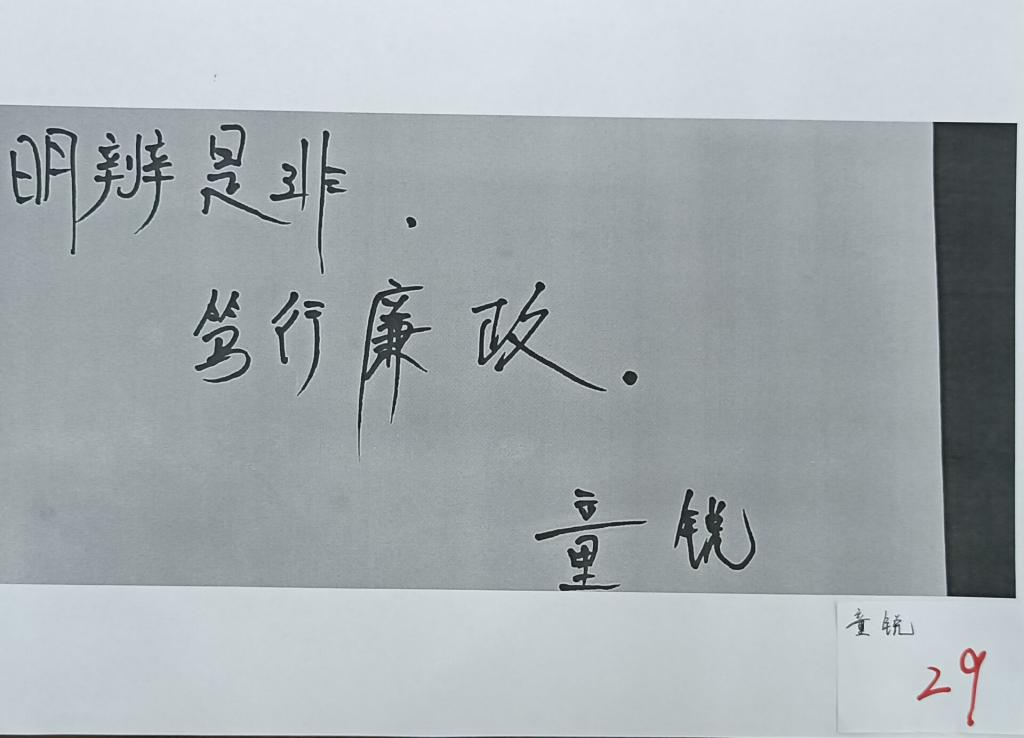 明辨是非.
笃行廉政.
童锐
童锐
29